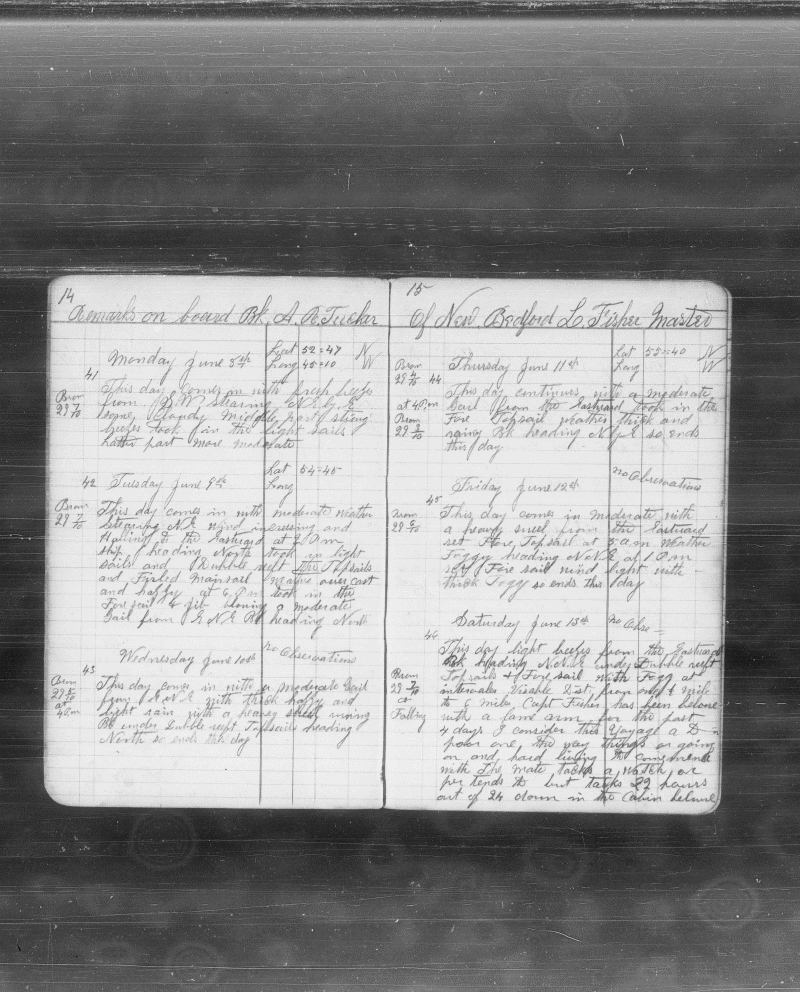 14
Remarks on board Bk, A. R. Tucker
Monday June 8th
Lat 52=47 N
Long 45=10 W
41
This day comes in with fresh breezes
from S.W. Stearing N.E. by E
some cloudy Middle part strong
breezes took in the light sails
latter part more moderate
Brom
29 7/10
42
Tuesday June 9th
Lat 54=45
Long
Brom
29 7/10
This day comes in with moderate weather
stearing N.E. wind increesing and
Halling to the Eastward at 7 A m
ship heading North took in light
sails and Dubble reeft the Topsails
and Firled mainsail Maine over cast
and haszy at 6 P m took in the
Fore sail & jib blowing a moderate
Gail from E.N.E Bk heading North
43
Wednesday June 10th
no Observations
Brom
29 5/10
at
4 P.m
This day comes in with a moderate Gail
from E.N.E. with thick haszy and
light rain with a heavy swell runing
Bk under Dubble reeft Topsails heading
North so ends the day
15
Of New Bedford L. Fisher Master
Brom
29 4/10
44
Thursday June 11th
Lat 55=40 N
Long W
at 4 P.m
Brom
29 3/10
This day continues with a moderate
Gail from the Eastward took in the
Fore Topsail weather thick and
rainy Bk heading N by E so ends
this day
45
Friday June 12th
no Observations
Brom
29 6/10
This day comes in moderate with
a heavy swell from the Eastward
set Fore Topsail at 5 a m Weather
Foggy heading N N E at 1 P m
set Fore sail wind light with
thick Fogg so ends this day
46
Saturday June 13th
no Obse
Brom
29 7/10
Falling
This day light breezes from the Eastward
Bk heading N.N.E under Dubble reeft
Topsails & Fore sail with Fogg at
intervales Visable Dist, from one 1/4 mile
to 6 miles, Capt Fisher has been below
with a lame arm for the past
4 days I consider this Voyage a D—n
poor one, the way things or going
on and hard living to commence
with The Mate tacks a watch, or
pertends to but tacks 22 hours
out of 24 down in the Cabin below